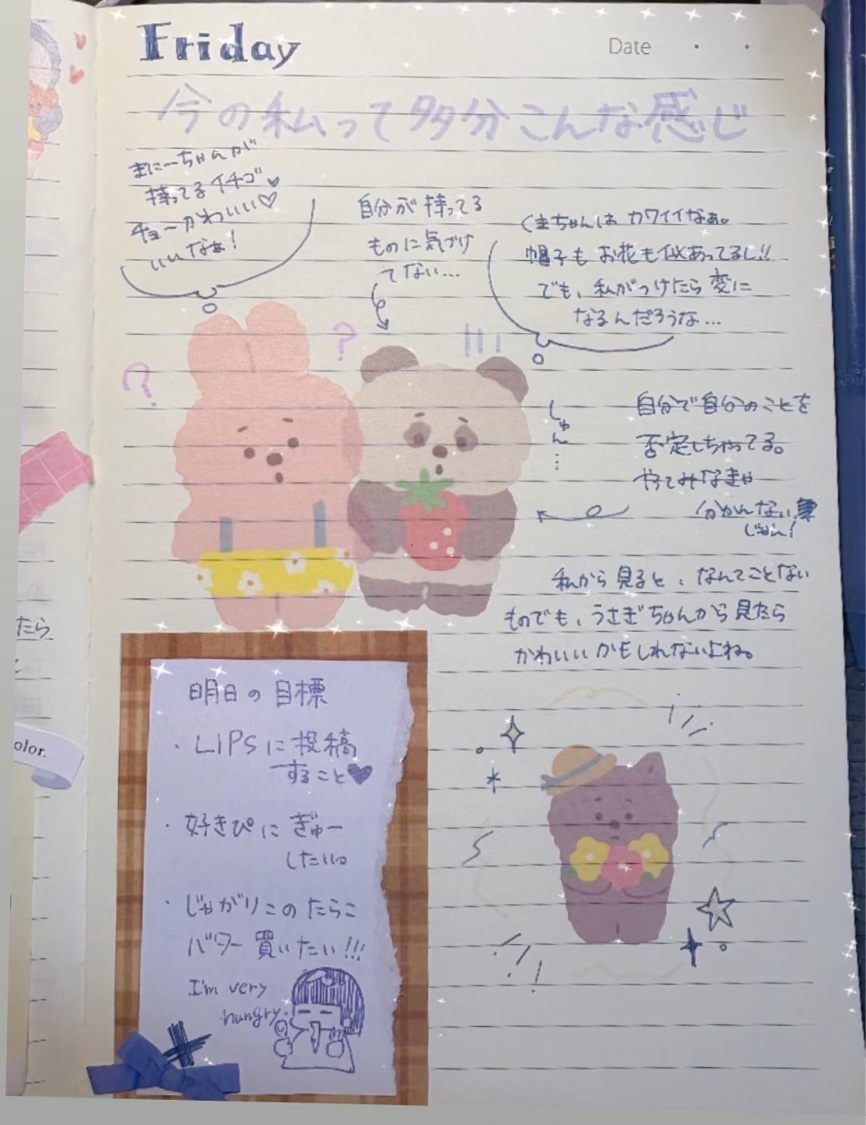 Friday
Date
今の私って多分こんな感じ
まにーちゃんが
持ってるイチゴ
チョーかわいい♡
いいなぁ!
自分が持ってる
ものに気づけ
てない…
くまちゃんは カワイイなぁ。
帽子も お花も似あってるし!!
でも、私がつけたら変に
なるんだろうな…
?
?
しゅん…
自分で自分のことを
否定しちゃってる。
やってみなきゃ
分かんない
じゃん!
私から見ると、なんてことない
ものでも、うさぎちゃんから見たら
かわいいかもしれないよね。
たら
olor.
明日の目標
・LIPSに投稿
すること♥
・好きぴにぎゅー
したい。
・じゃがりこのたらこ
バター買いたい!!!
I'm very
hungry.